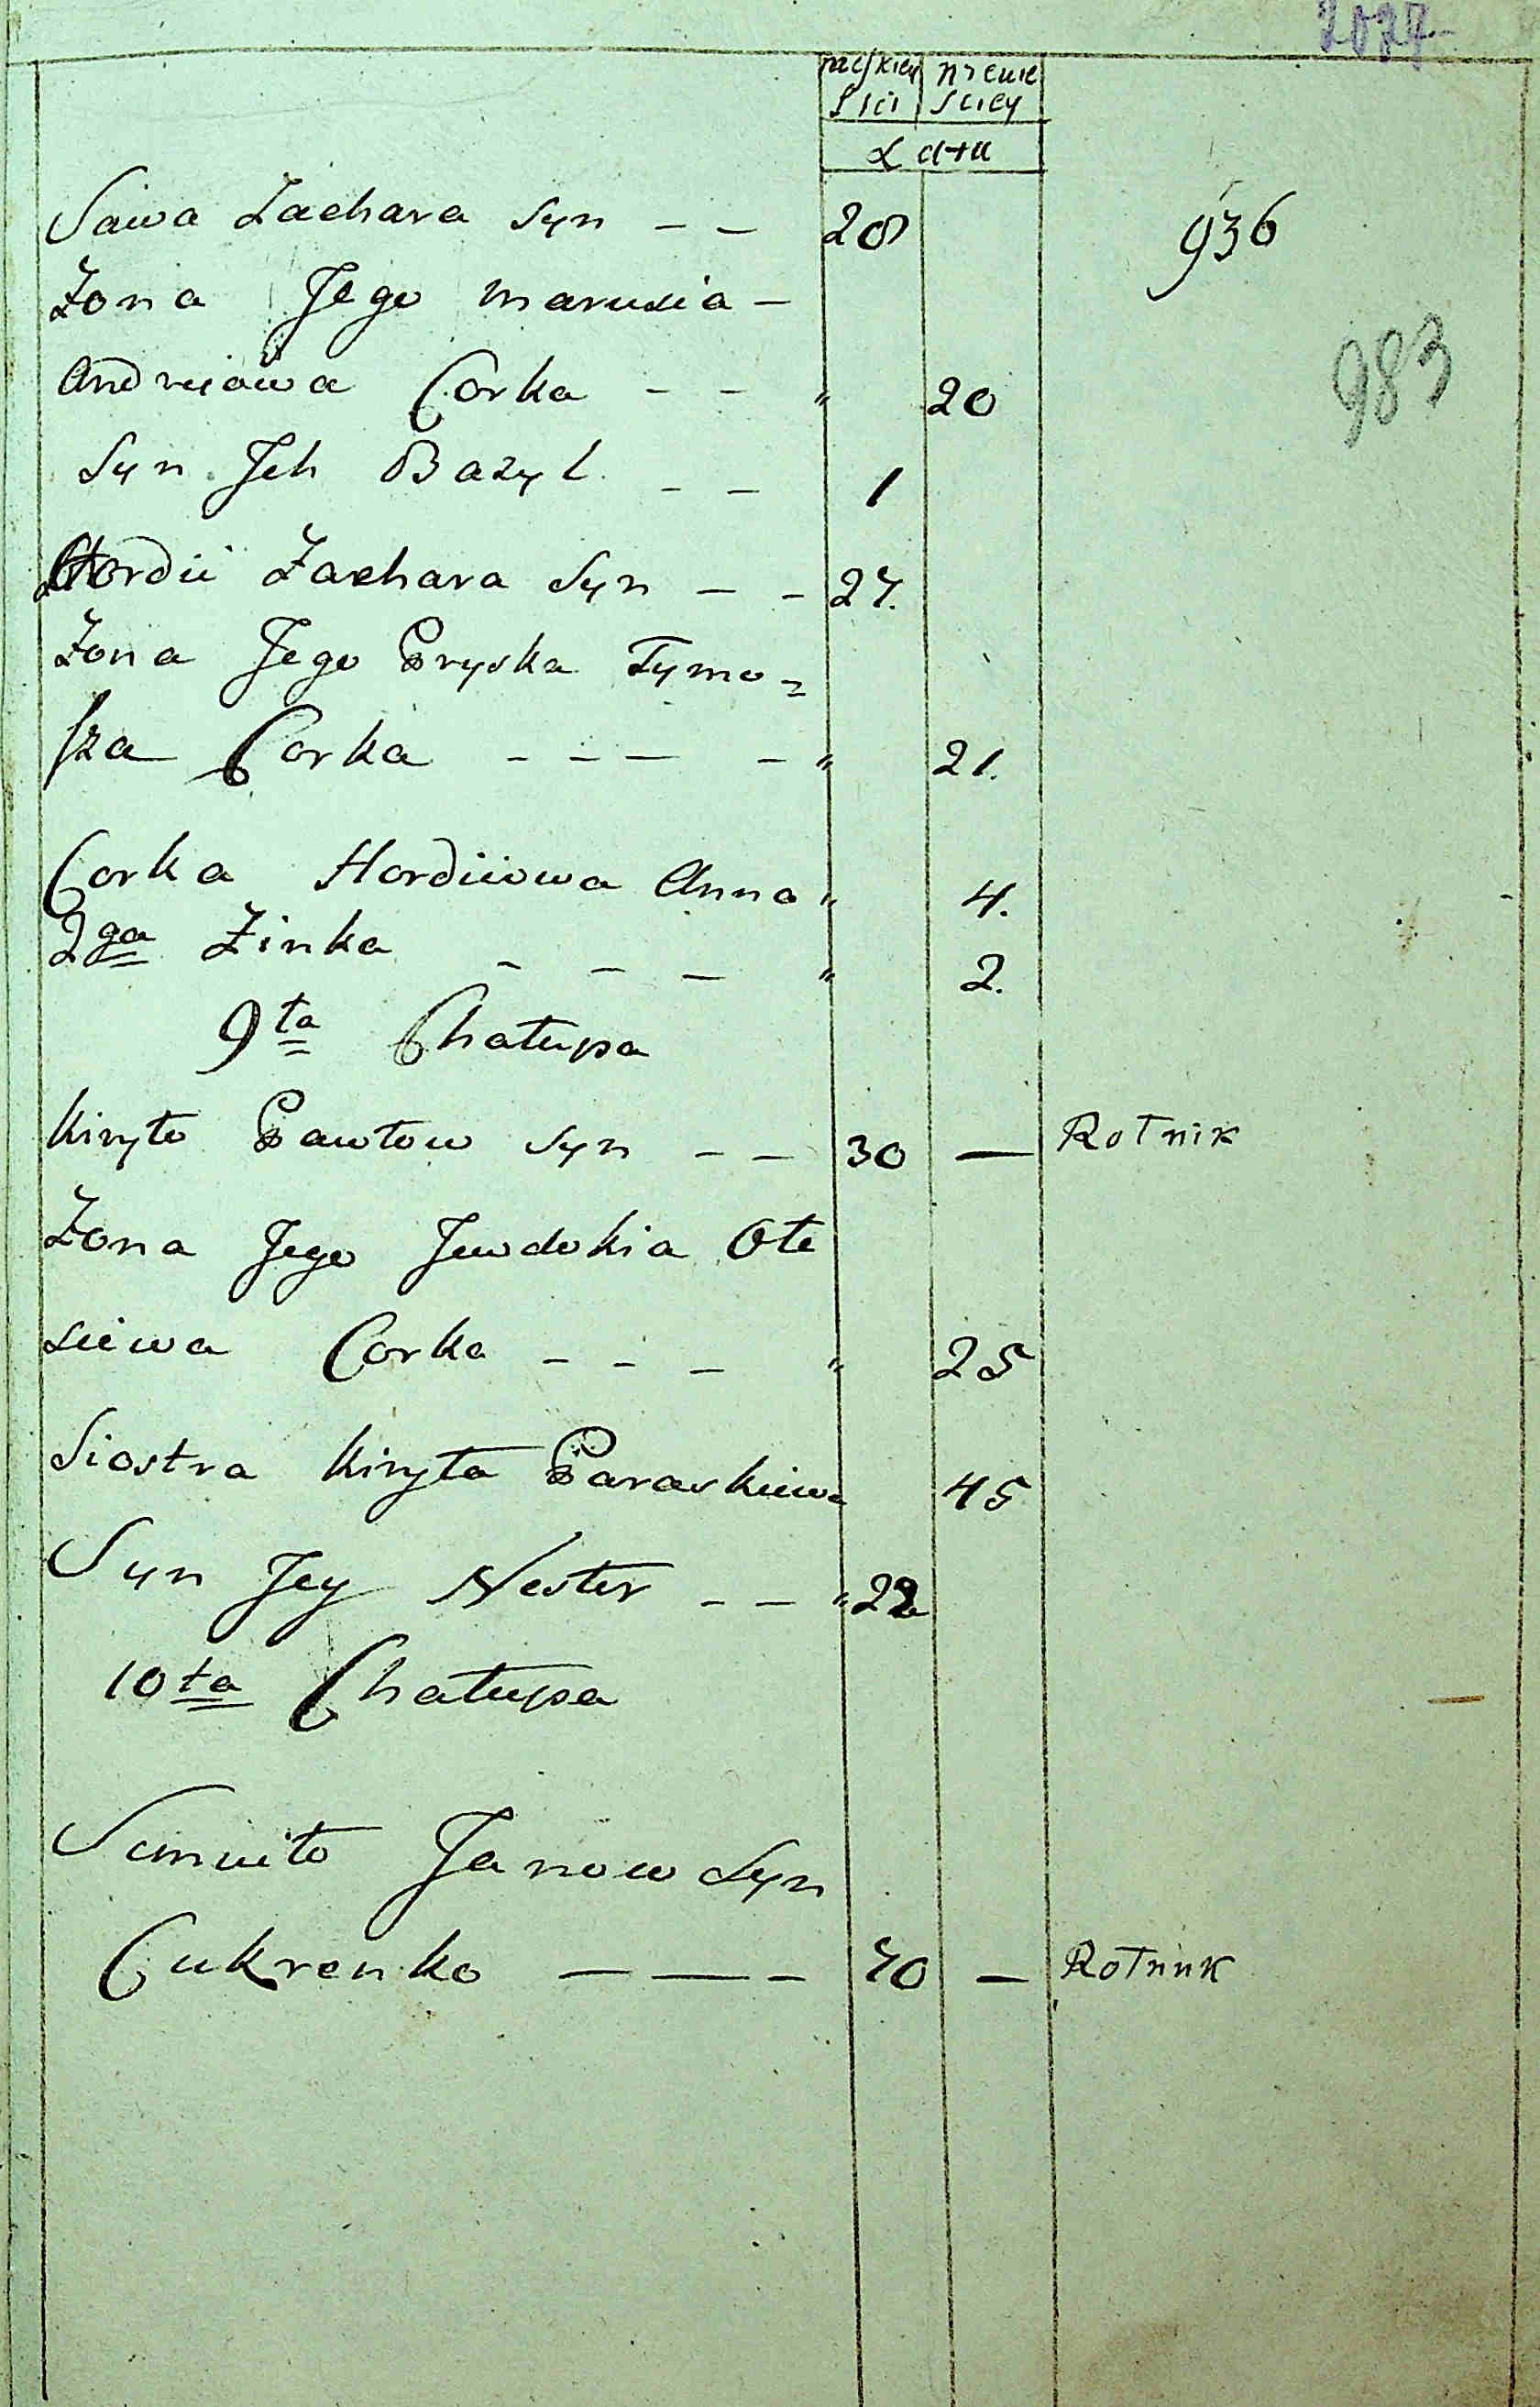 męskiey | żeńskiey
płci | sciey
Lata
Sawa Zachara Syn - - 28 936
Żona Jego Marusia -
Andrejowa Corka - - " 20 983
Syn Jch Bazyl - - 1
Hordii Zachara Syn - - 27.
Żona Jego Pryska Tymo=
sza Corka - - - - " 21.
Corka Hordiiowa Anna " 4.
2ga Zinka - - - " 2.
9ta Chałupa
Kiryło Pawłow Syn - - 30 — Rolnik
Żona Jego Jewdokia Ołe
siewa Corka - - - " 25
Siostra Kiryła Paraskiewa 45
Syn Jey Nester - - " 22
10ta Chałupa
Janow Syn
Cukrenko — — - 40 — Rolnik